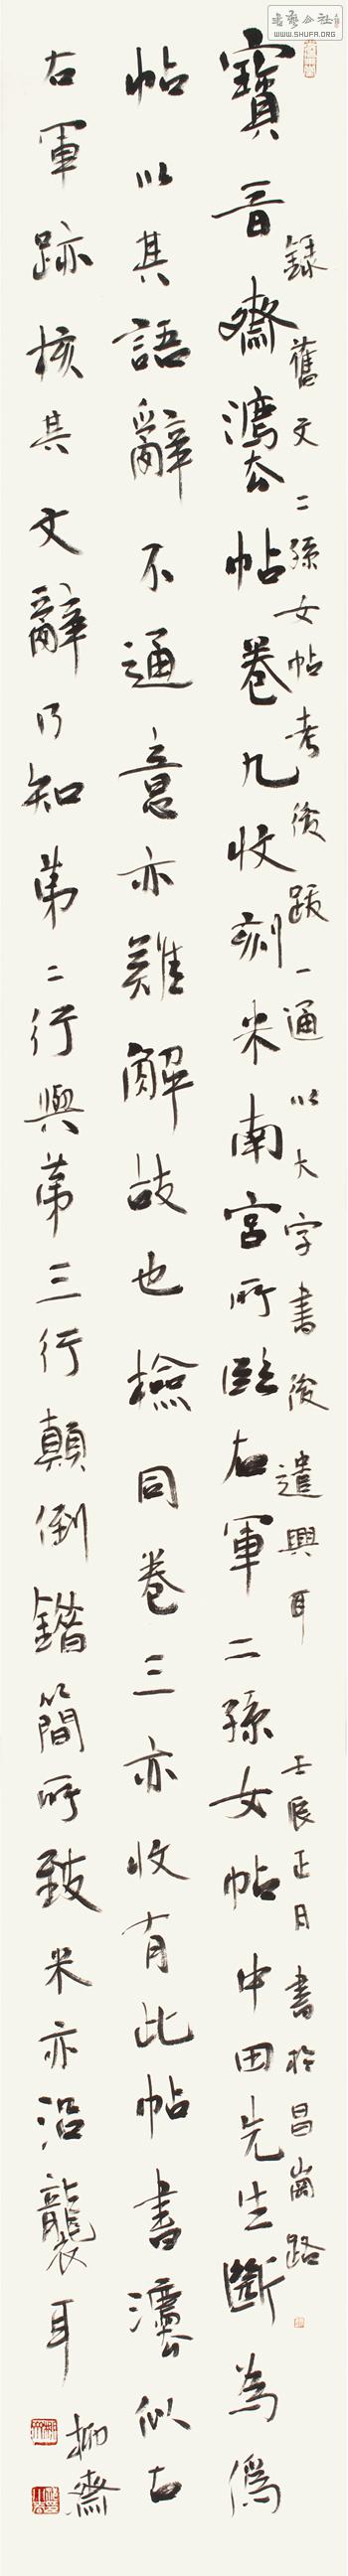 錄舊文二孫女帖考後跋一通以大字書後遣興耳 壬辰正月書於昌崗路
寶晉齋灋帖卷九收刻米南宮所臨右軍二孫女帖中田先生斷為偽
帖以其語辭不通意亦難解故也檢同卷三亦收有此帖書灋似古
右軍跡核其文辭乃知第二行與第三行顛倒錯簡所致米亦沿襲耳
柳齋
書藝公社
WWW.SHUFA.ORG